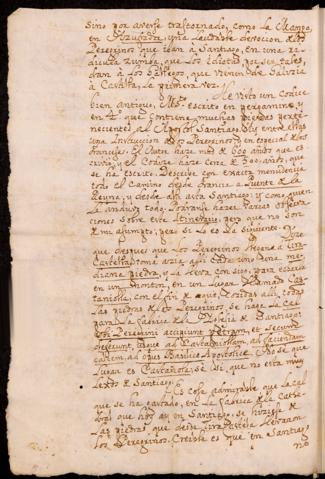 Sino por averse trastornado, como la Mampa,
en y la laudable devocion de los
Peregrinos que iban a Santiago, en una ri-
dicula zumba, que los
a los Gallegos, que vienen de Galizia
a Castilla la primera vez. He visto un Codice
bien antiguo, Ms. escrito en pergamino, y
en 4º que contiene muchas piezas perte-
necientes al Apostol Santiago. Hay entre ellas
una Instruccion a los Peregrinos, y en especial a los
franceses. El Autor hace más de 600 años que es-
crivio, y el Codice hace cerca de 500 años, que
se ha escrito. Describe con exacta menudencia
todo el Camino desde francia a Puente la
Reyna, y desde alli asta Santiago; y
hacer varias observa-
ciones sobre este Itinerario, pero que no son
de mi assumpto, pero si lo es la siguiente. Dice
que despues que los Peregrinos llegan a
Castella, toma azia alli cada uno una me-
diana piedra, y la lleva consigo, para echarla
en un monton, en un Lugar llamado Cas-
taniola, con el fin de que cozidas alli todas
las piedras de los Peregrinos, se haga la Cal
para la fabrica de la Iglesia de Santiago:
Peregrini accipiunt Petram, et secum
deferunt, usque ad Castaniollam, ad faciendam
calcem, ad opus Basilicæ Apostolicæ. No se que
Lugar es Castañola; Sé sí, que no esta muy
lexos de Santiago.
Es cosa admirable que la cal
que se ha gastado, en la fabrica de la Cathe-
dral que hoy ay en Santiago, se hiziesse de
las piedras que desde Triacastela llevaron
los Peregrinos. Creible es que en Santiago,
no